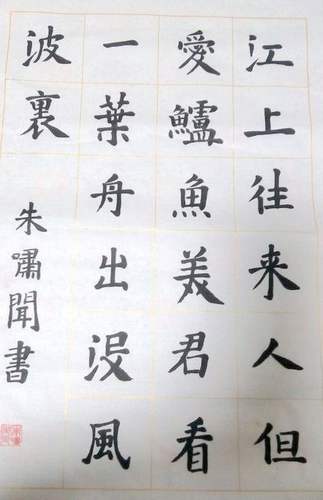 江上往来人但
愛鱸魚美君看
一葉舟出没風
波裏
朱嘯聞書